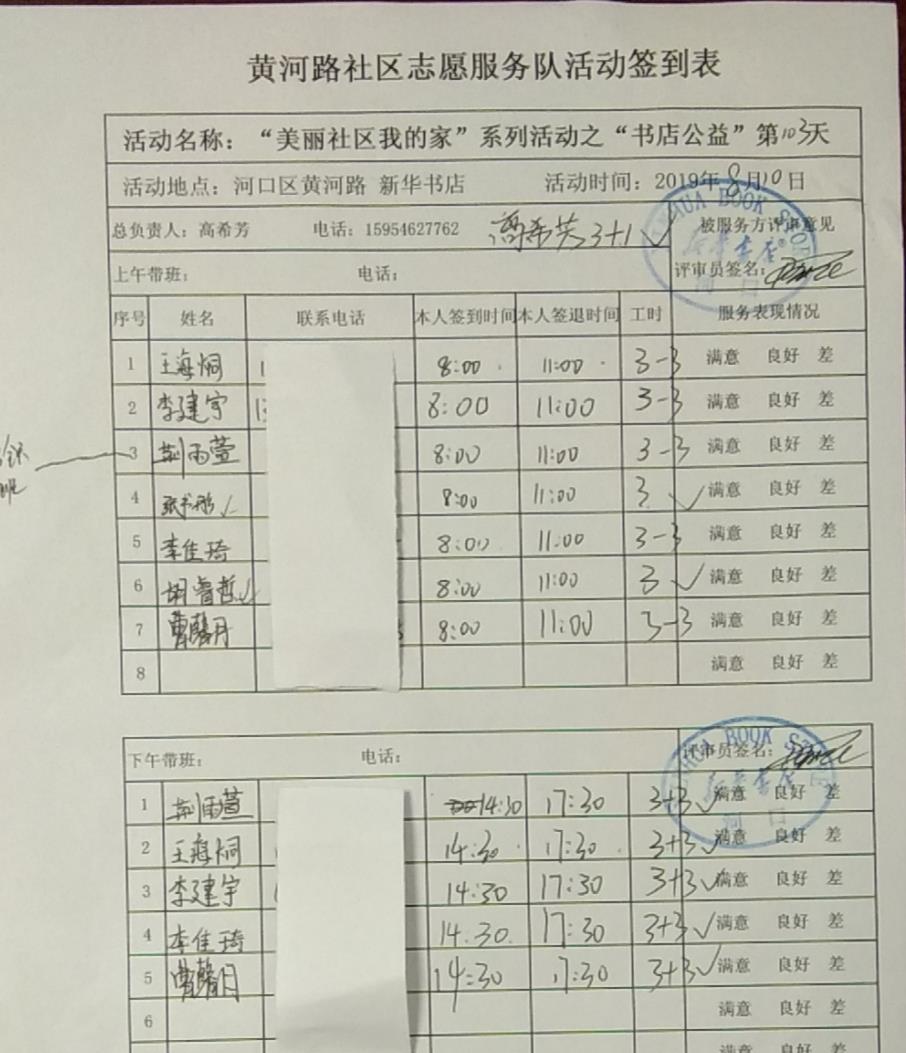 黄河路社区志愿服务队活动签到表
活动名称：“美丽社区我的家”系列活动之“书店公益”第103天
活动地点：河口区黄河路 新华书店 活动时间：2019年8月10日
总负责人：高希芳 电话：15954627762 高希芳3+1√ 被服务方评审意见
上午带班： 电话： 评审员签名：
序号 姓名 联系电话 本人签到时间 本人签退时间 工时 服务表现情况
1 王海炯 8:00 11:00 3-3 满意 良好 差
2 李建宇 8:00 11:00 3-3 满意 良好 差
3 荆雨萱 8:00 11:00 3-3 满意 良好 差
4 8:00 11:00 3 √ 满意 良好 差
5 李佳琦 8:00 11:00 3-3 满意 良好 差
6 胡睿哲√ 8:00 11:00 3 √ 满意 良好 差
7 曹馨月 8:00 11:00 3-3 满意 良好 差
8 满意 良好 差
下午带班： 电话： 评审员签名：
1 荆雨萱 14:30 17:30 3+3√ 满意 良好 差
2 王海炯 14:30 17:30 3+3√ 满意 良好 差
3 李建宇 14:30 17:30 3+3√ 满意 良好 差
4 李佳琦 14:30 17:30 3+3√ 满意 良好 差
5 曹馨月 14:30 17:30 3+3√ 满意 良好 差
6 满意 良好 差
满意 良好 差